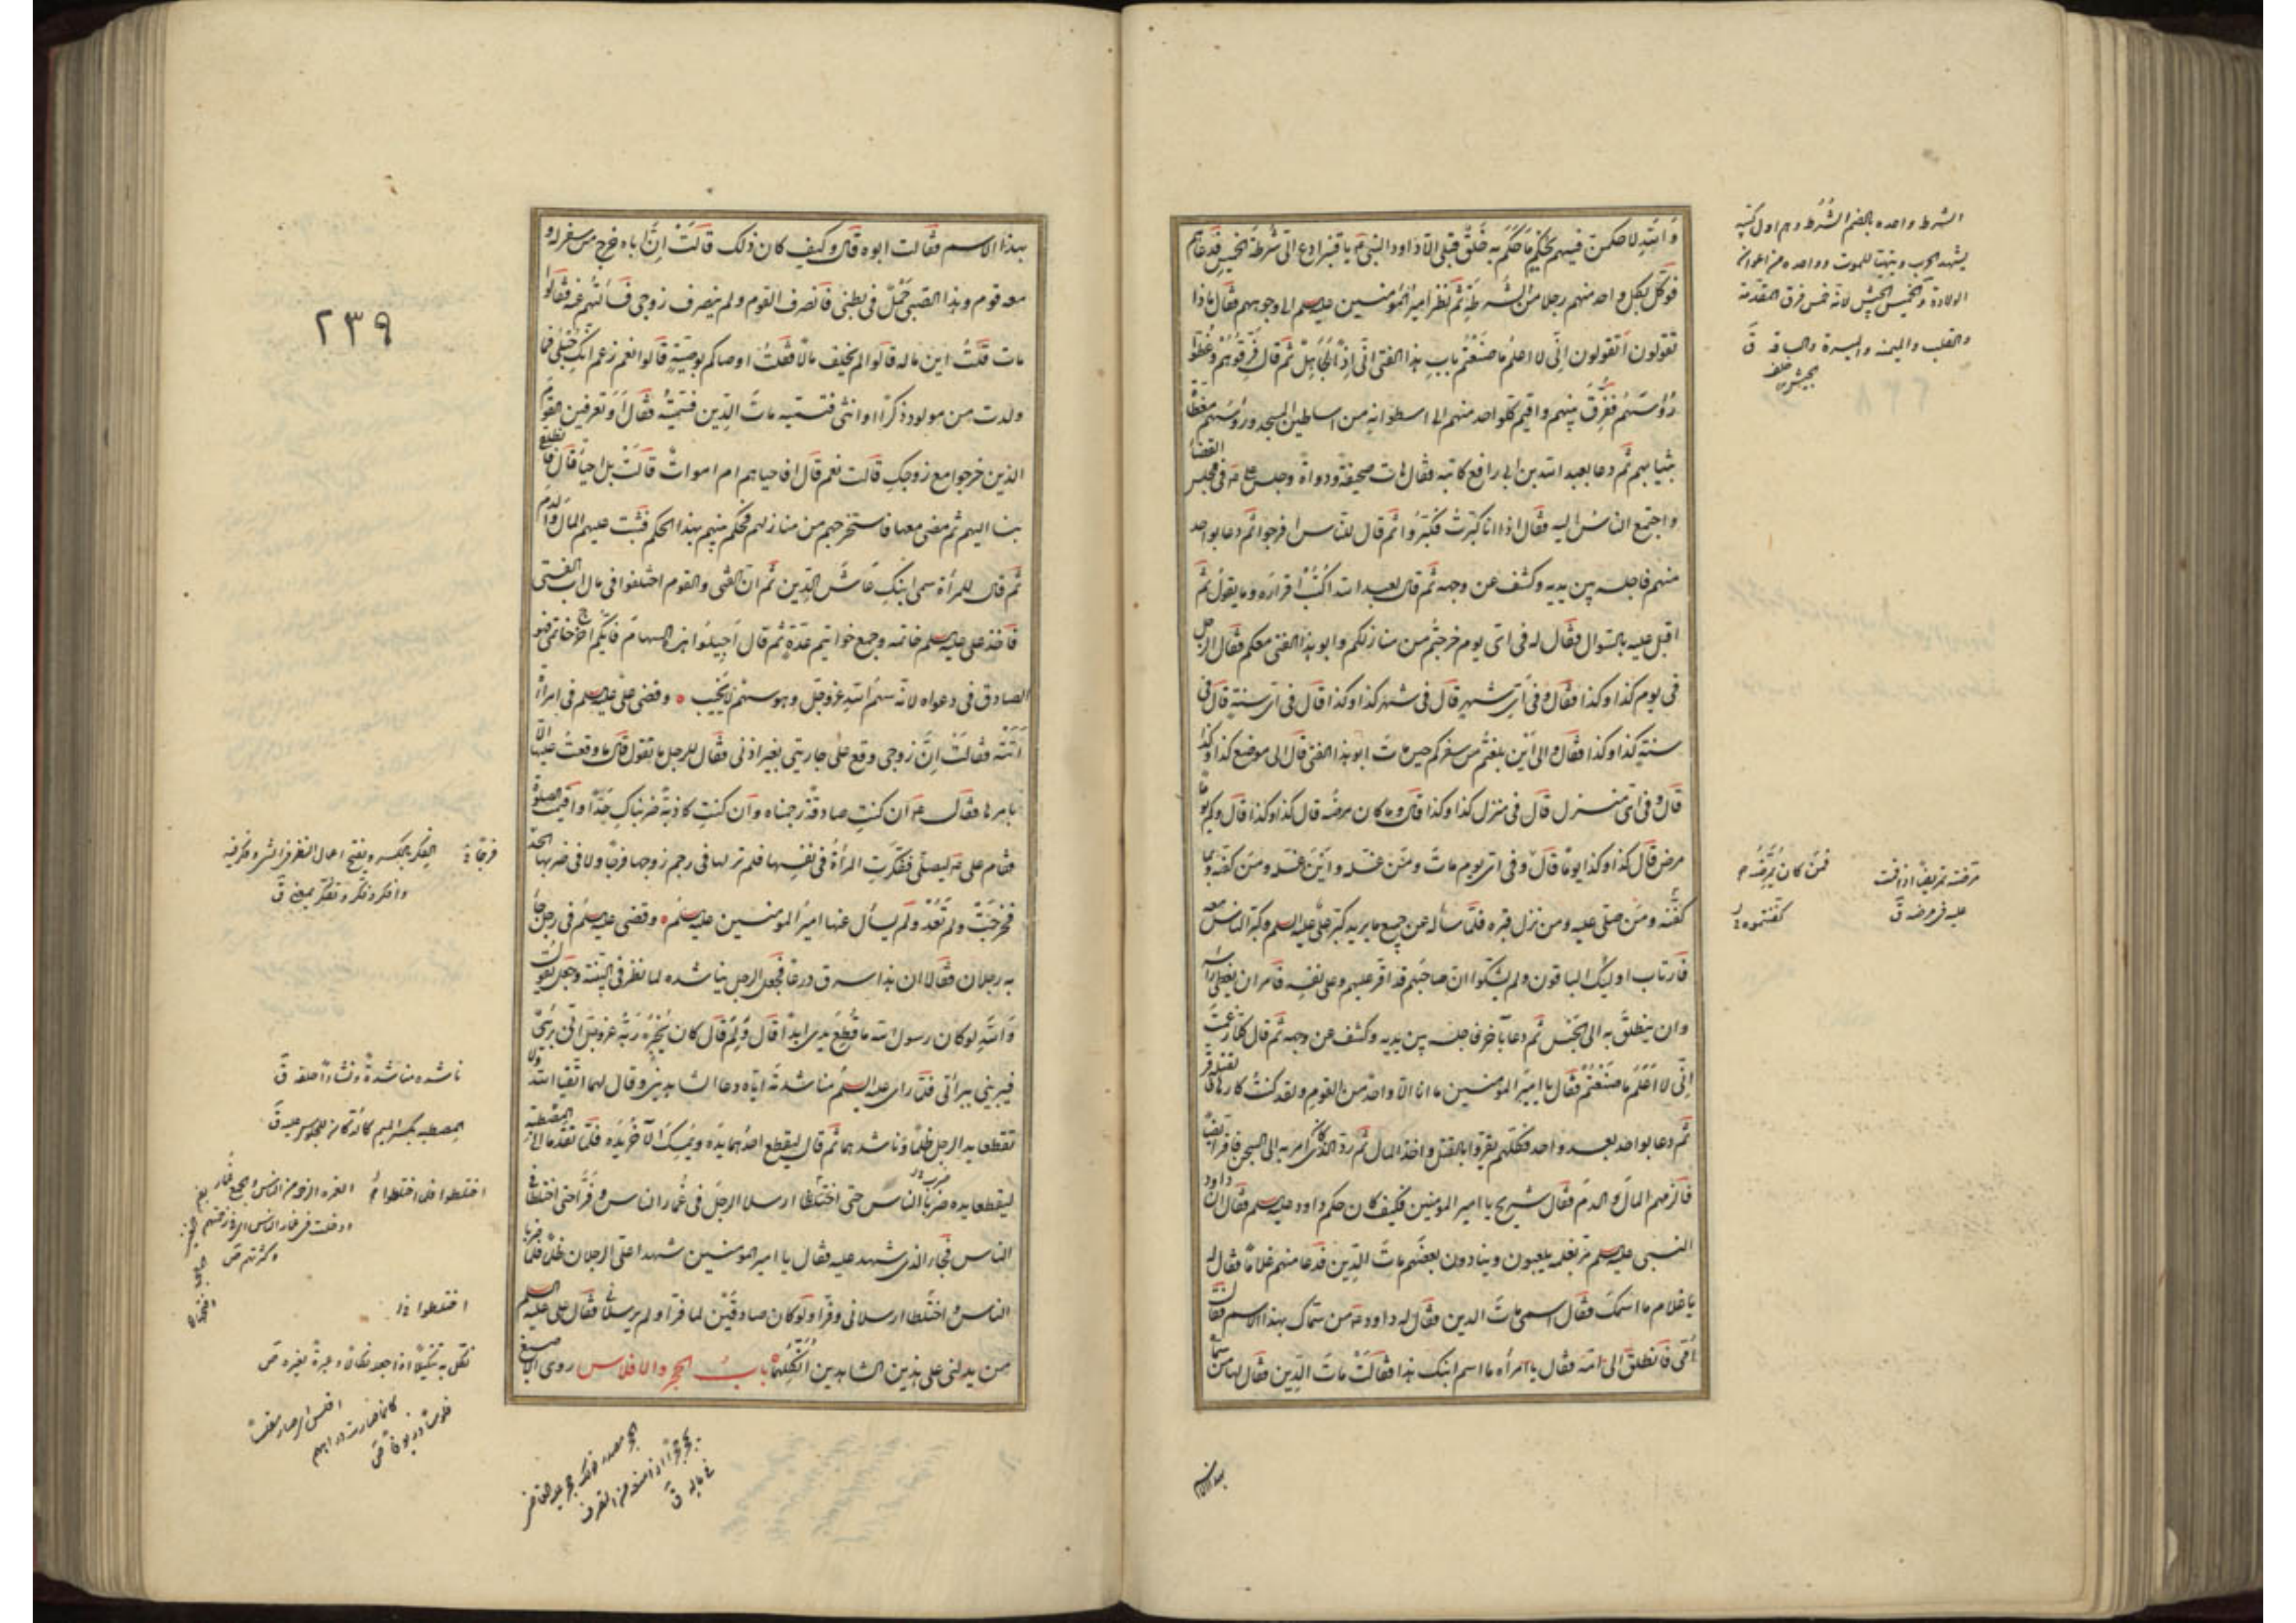 وَاللهِ لاحكمن فيهم بحكم ما حَكَمَ به خَلقٌ قبلى الّا داود النبىّ ع يا قنبر ادع الىّ شُرطَة الخميس فدعاهم
فوَكَّل بكل واحد منهم رجلا من الشرطة ثم نظر امير المؤمنين عليه السلم الى وجوههم فقال ماذا
تقولون اتقولون انّى لا اعلم ما صنعتم باب هذا الفتى انّى اذًا لجاهل ثم قال فَرّقوهُم وغطّوا
رؤسهم ففُرّق بينهم واقيم كلّ واحد منهم الى اسطوانة من اساطين المسجد ورؤسهم مغطاة
بثيابهم ثم دعا بعبد الله بن ابى رافع كاتبه فقال هات صحيفة ودواة وجلس على ع فى مجلس القضاء
واجتمع الناس اليه فقال اذا انا كبّرت فكبّروا ثم قال للناس افرجوا ثم دعا بواحد
منهم فاجلسه بين يديه وكشف عن وجهه ثم قال لعبد الله اكتب اقراره وما يقول ثم
اقبل عليه بالسوال فقال له فى اىّ يوم خرجتم من منازلكم وابو هذا الفتى معكم فقال الرجل
فى يوم كذا وكذا فقال وفى اىّ شهر قال فى شهر كذا وكذا قال فى اىّ سنة قال فى
سنة كذا وكذا فقال والى اين بلغتم من سفركم حين مات ابو هذا الفتى قال الى موضع كذا وكذا
قال وفى اىّ منزل قال فى منزل كذا وكذا قال وما كان مرضه قال كذا وكذا قال وكم يوما
مرض قال كذا وكذا يوما قال وفى اىّ يوم مات ومن غسله واين غسله ومن كفّنه وبما
كفّنه ومن صلى عليه ومن نزل قبره فلمّا سأله عن جميع ما يريد كبّر على عليه السلم وكبّر الناس معه
فارتاب اولئك الباقون ولم يشكّوا انّ صاحبهم قد اقرّ عليهم وعلى نفسه فامر ان يغطى راسه
وان ينطلق به الى الحبس ثم دعا بآخر فاجلسه بين يديه وكشف عن وجهه ثم قال كلّا زعمت
انّى لا اعلم ما صنعتم فقال يا امير المؤمنين ما انا الّا واحد من القوم ولقد كنت كارها لقتله فاقر
ثم دعا بواحد بعد واحد فكلهم يقرّ بالقتل واخذ المال ثم ردّ الذى كان امر به الى السجن فاقر ايضا
فالزمهم المال والدم فقال شريح يا امير المؤمنين فكيف كان حكم داود عليه السلم فقال ان داود
النبى عليه السلم مرّ بغلمة يلعبون وينادون بعضهم مات الدّين فدعا منهم غلاما فقال له
يا غلام ما اسمك فقال اسمى مات الدين فقال له داود ع من سمّاك بهذا الاسم فقال
اُمّى فانطلق الى امّه فقال يا امرأة ما اسم ابنك هذا فقالت مات الدّين فقال لها من سمّاه
بهذا الاسم
الشرط واحده بالضم الشُرَط وهم اول كتيبة
يشهد الحرب وتتهيّأ للموت وواحده من اعوان
الولاة والخميس الجيش لانه خمس فرق المقدمة
والقلب والميمنة والميسرة والساقة ق
فمن كان يُمرّضُه
مرّضته تمريضا اذا قمت
عليه فى مرضه ق
كفّنتموه
بهذا الاسم فقالت ابوه قال وكيف كان ذلك قالت انّ اباه خرج من سفر له و
معه قوم وهذا الصبىّ حَمْلٌ فى بطنى فانصرف القوم ولم ينصرف زوجى فسألتهم عنه فقالوا
مات قلت اين ماله قالوا لم يخلف مالًا فقلت اوصاكم بوصيّة قالوا نعم زعم انك حبلى فما
ولدت من مولود ذكرًا او انثى فسمّيه مات الدّين فسمّيته فقال اَوَ تعرفين القوم
الذين خرجوا مع زوجك قالت نعم قال افاحياهم ام اموات قالت بل احياء قال فانطلقى
بنا اليهم ثم مضى معها فاستخرجهم من منازلهم فحكم بينهم بهذا الحكم فثبت عليهم المال والدم
ثم قال للمرأة سمى ابنك عاش الدّين ثم ان الفتى والقوم اختلفوا فى مال اب الفتى
فاخذ على عليه السلم خاتمه وجمع خواتيم عدّة ثم قال اجيلوا هذه السهام فايّكم اخرج خاتمى فهو
الصادق فى دعواه لانّه سهم الله عزّ وجل وهو سهم لا يخيب وقضى على عليه السلم فى امرأة
اتته فقالت انّ زوجى وقع على جاريتى بغير اذنى فقال للرجل ما تقول قال ما وقعت عليها الّا
بامرها فقال ع ان كنت صادقة رجمناه وان كنت كاذبة ضربناك حدّا واقيمت الصلوة
فقام على ع ليصلّى ففكّرت المرأة فى نفسها فلم تر لها فى رجم زوجها فرجا ولا فى ضربها الحدّ
فخرجت ولم تعد ولم يسأل عنها امير المؤمنين عليه السلم وقضى عليه السلم فى رجل جاء
به رجلان فقالا ان هذا سرق درعا فجعل الرجل يناشده لما نظر فى البيّنة وجعل يقول
والله لو كان رسول الله ما قُطع يدى ابدًا قال ولِمَ قال كان يُخبره ربّه عزّ وجل انّى برئ
فيبرينى ببراتى فلمّا راى عليه السلم مناشدته ايّاه دعا الشاهدين وقال لهما اتّقيا الله ولا
تقطعا يد الرجل ظلما وناشدهما ثم قال ليقطع احدهما يده ويمسك الآخر يده فلمّا تقدّما الى المصطبة
ليقطعا يده ضربا الناس حتى اختلطا ارسلا الرجل فى غمار الناس وفرّا حتى اختلطا فى
الناس فجاء الذى شهد عليه فقال يا امير المؤمنين شهدا علىّ الرجلان ظلما فلمّا ضربا
الناس واختلطا ارسلانى وفرّا ولو كان صادقين لما فرّا ولم يرسلانى فقال على عليه السلم
من يدلنى على هذين الشاهدين اُنكلهما باب الحجر والافلاس روى الاصبغ
٢٣٩
فرجًا
الفكر بالكسر ويفتح اعمال النظر فى الشئ وفكر فيه
وافكر وفكّر وتفكّر بمعنى ق
ناشده مناشدة ونشادا حلفه ق
المصطبة بكسر الميم كالدكان للجلوس عليه ق
وكثرتهم ص
اختلطوا
نكل به تنكيلا اذا جعله نكالا وعبرة لغيره ص
افلس اى صار مفلسا
كانما صارت دراهمه
فلوسا وزيوفا ص
الحجر مصدر قولك حجر عليه القاضى
يحجر حجرا اذا منعه من التصرف
فى ماله ق